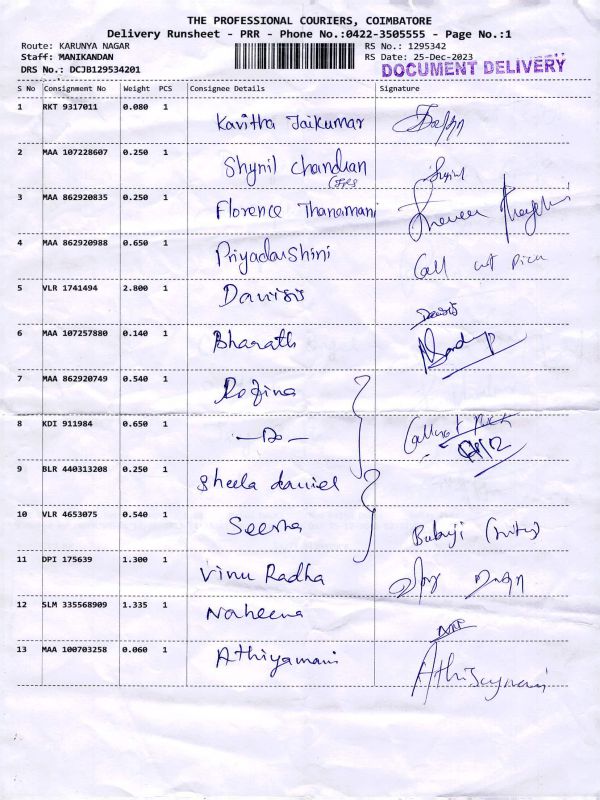 THE PROFESSIONAL COURIERS, COIMBATORE
Delivery Runsheet - PRR - Phone No.:0422-3505555 - Page No.:1
Route: KARUNYA NAGAR RS No.: 1295342
Staff: MANIKANDAN RS Date: 25-Dec-2023
DRS No.: DCJB129534201 DOCUMENT DELIVERY
S No Consignment No Weight PCS Consignee Details Signature
1 RKT 9317011 0.080 1 Kavitha Jaikumar
2 MAA 107228607 0.250 1 Shynil Chandran
3 MAA 862920835 0.250 1 Florence Thanamani
4 MAA 862920988 0.650 1 Priyadarshini Call not Pick
5 VLR 1741494 2.800 1 Davisis
6 MAA 107257880 0.140 1 Bharath
7 MAA 862920749 0.540 1 Rofina
8 KDI 911984 0.650 1 -Do- Call not Pick
9 BLR 440313208 0.250 1 Sheela daniel
10 VLR 4653075 0.540 1 Seema Babuji
11 DPI 175639 1.300 1 Vinu Radha
12 SLM 335568909 1.335 1 Naheena
13 MAA 100703258 0.060 1 Athiyamani